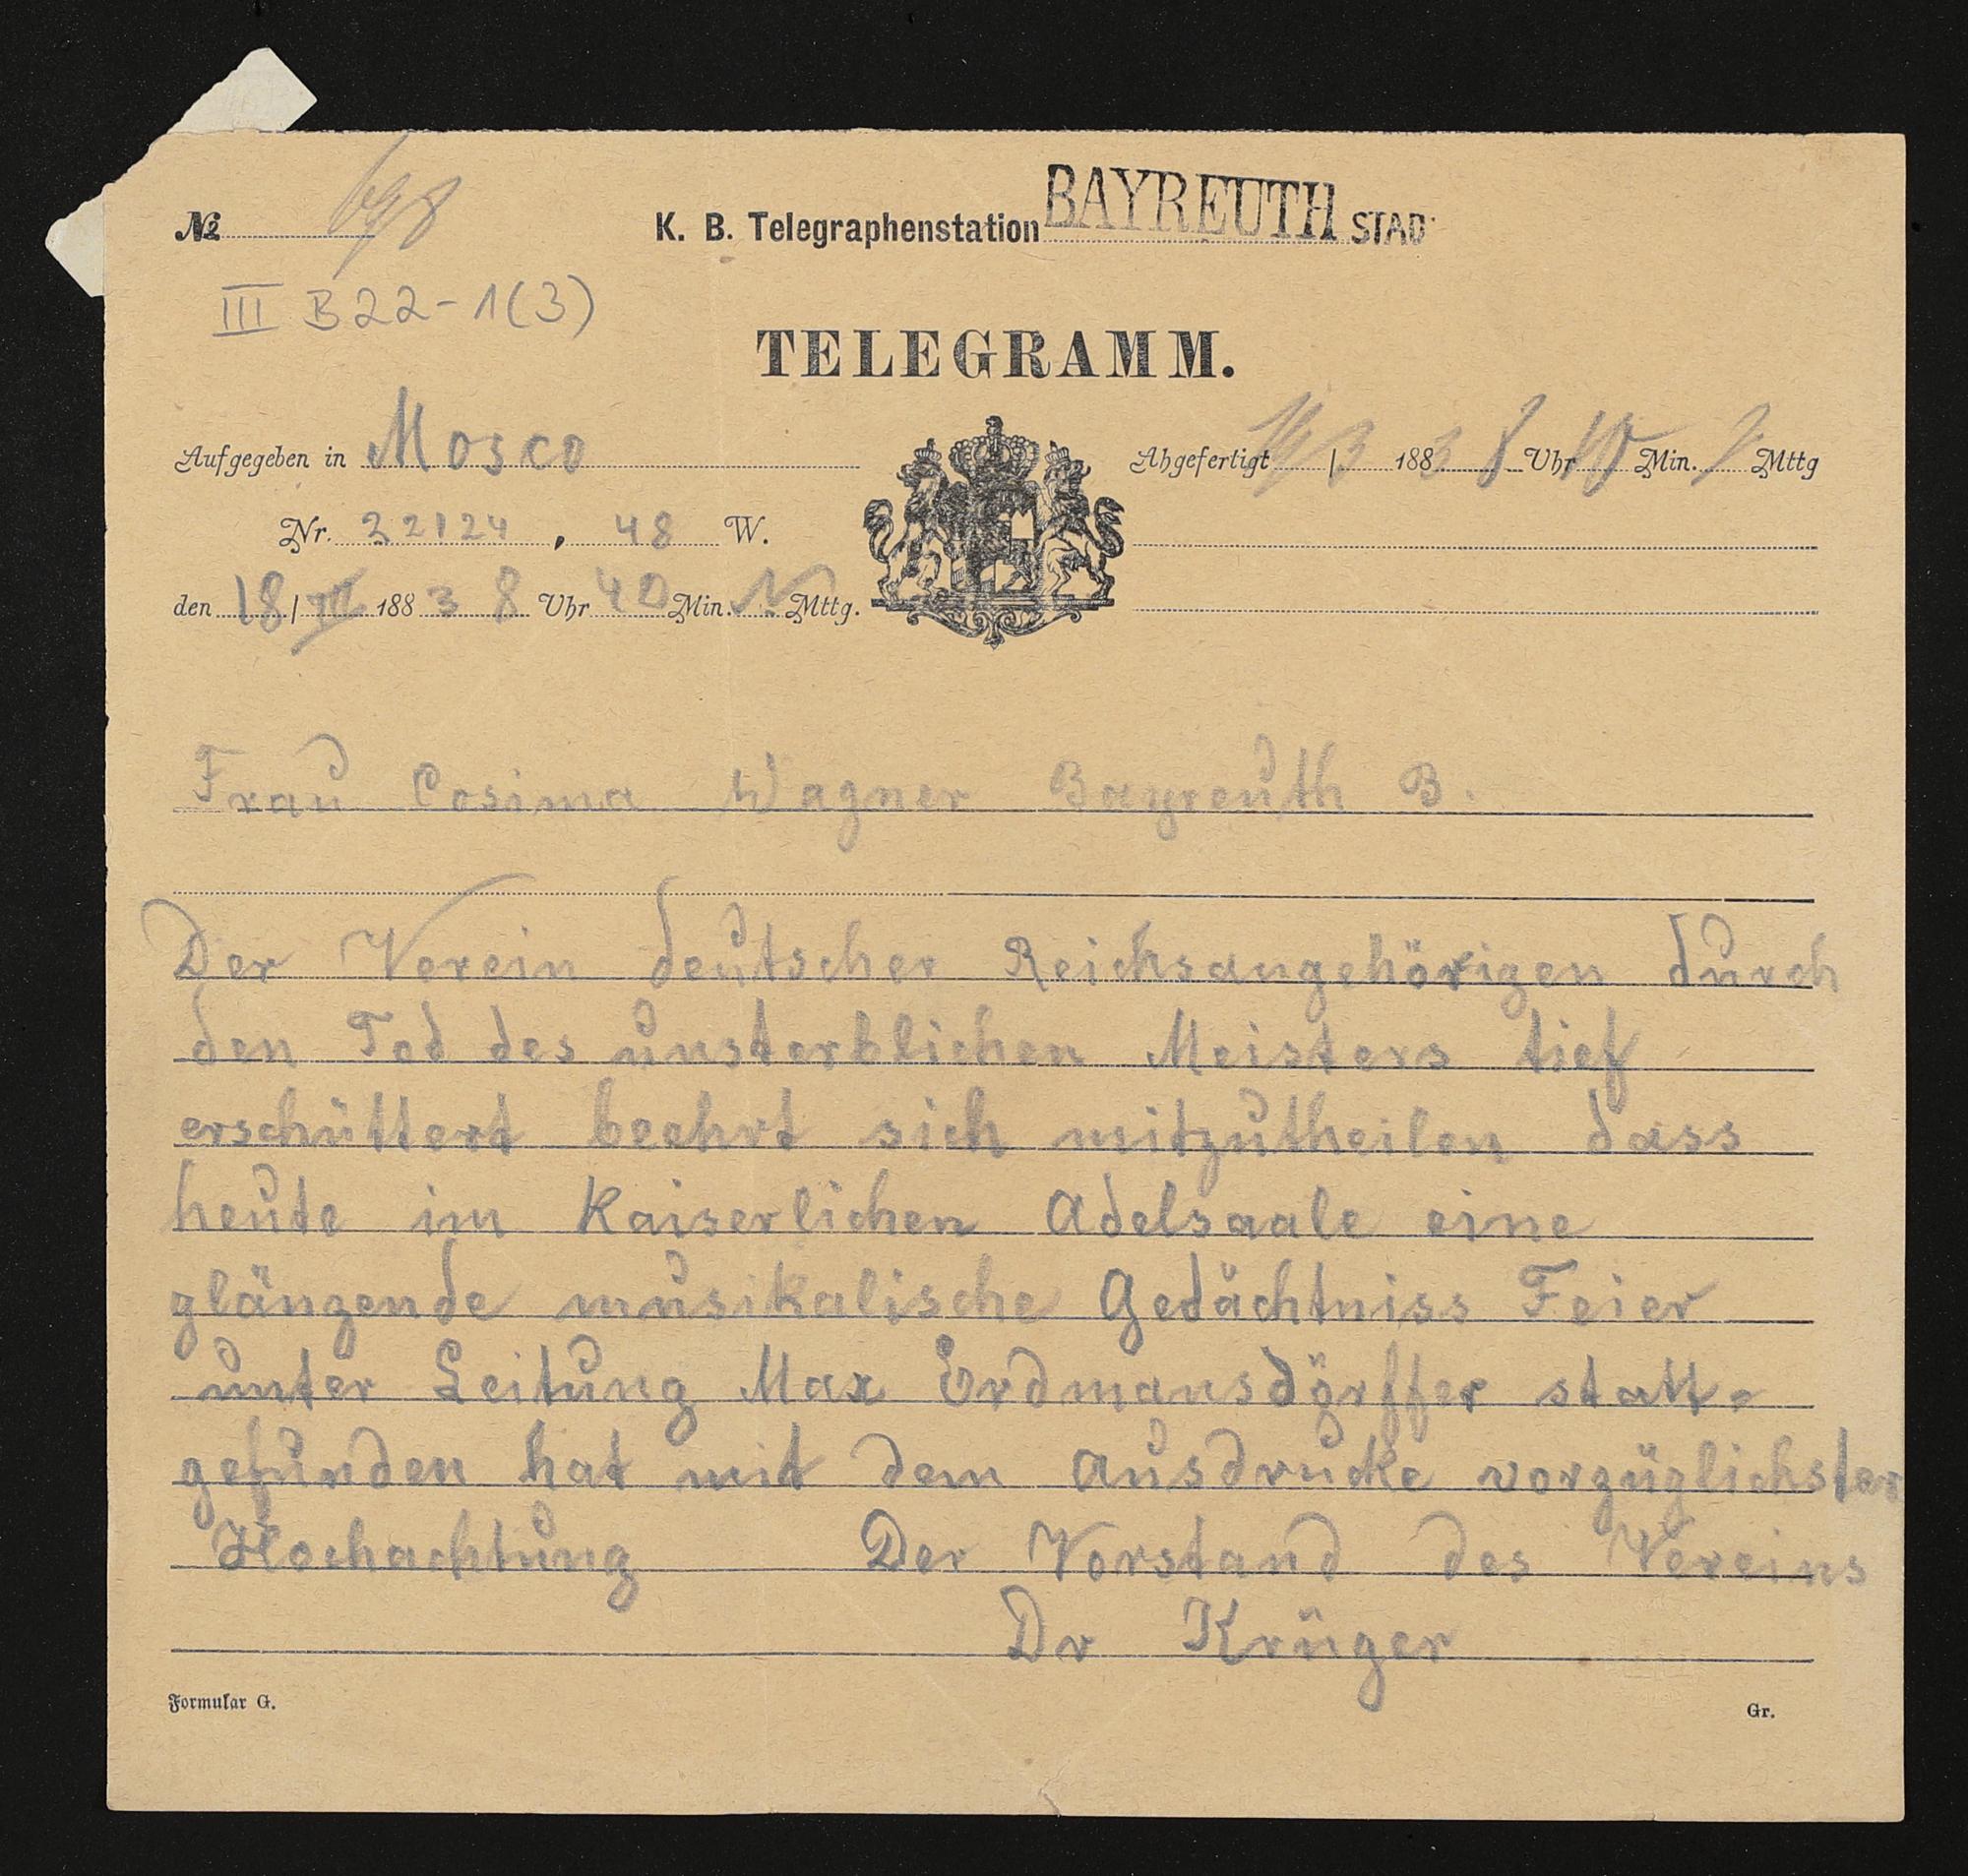 № 698 K. B. Telegraphenstation BAYREUTH STAD
III B 22-1(3)
TELEGRAMM.
Aufgegeben in Mosco
Abgefertigt 19/3 1883 8 Uhr Min. Mttg
Nr. 22124, 48 W.
den 18/III 1883 8 Uhr 40 Min. N Mttg.
Frau Cosima Wagner Bayreuth B.
Der Verein deutscher Reichsangehörigen durch
den Tod des unsterblichen Meisters tief
erschüttert beehrt sich mitzutheilen dass
heute im Kaiserlichen Adelsaale eine
glänzende musikalische Gedächtniss Feier
unter Leitung Max Erdmansdörffer statt-
gefunden hat mit dem Ausdrucke vorzüglichster
Hochachtung Der Vorstand des Vereins
Dr Krüger
Formular G. Gr.